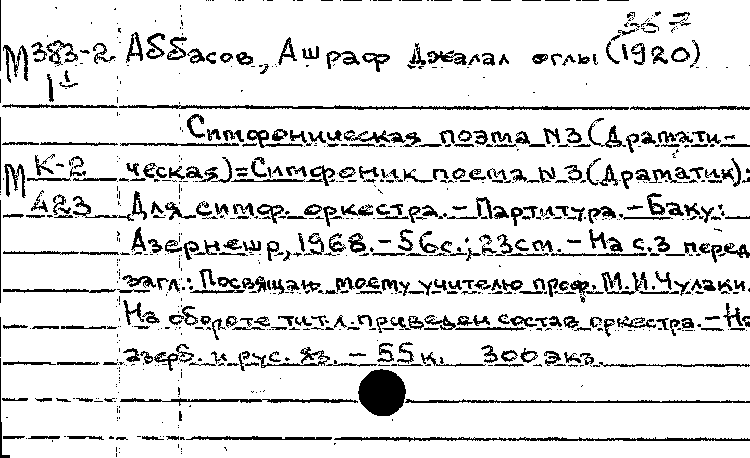 367
М 383-2 Аббасов, Ашраф Джалал оглы (1920)
1
Симфоническая поэма N3 (Драмати-
М К-2 ческая)=Симфоник поема N3 (Драматик):
423 Для симф. оркестра.-Партитура.-Баку:
Азернешр, 1968.-56с.; 23см.-На с.3 перед
загл.: Посвящаю моему учителю проф. М.И.Чулаки.
На обороте тит.л. приведен состав оркестра.-На
азерб. и рус. яз. - 55к. 300 экз.